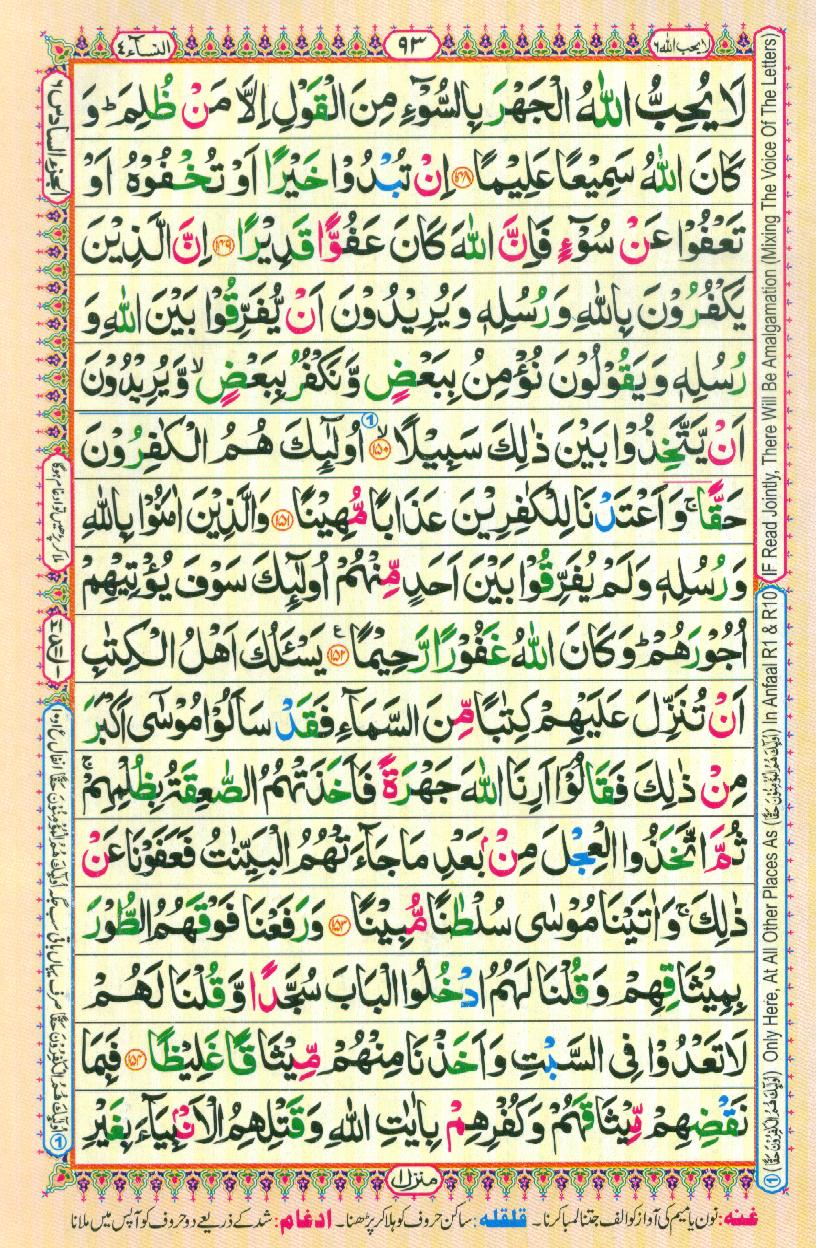 النسآء ٤
٩٣
لا یحب الله ٦
لَا یُحِبُّ اللّٰهُ الْجَهْرَ بِالسُّوْٓءِ مِنَ الْقَوْلِ اِلَّا مَنْ ظُلِمَ ؕ وَ
كَانَ اللّٰهُ سَمِیْعًا عَلِیْمًا ﴿۱۴۸﴾ اِنْ تُبْدُوْا خَیْرًا اَوْ تُخْفُوْهُ اَوْ
تَعْفُوْا عَنْ سُوْٓءٍ فَاِنَّ اللّٰهَ كَانَ عَفُوًّا قَدِیْرًا ﴿۱۴۹﴾ اِنَّ الَّذِیْنَ
یَكْفُرُوْنَ بِاللّٰهِ وَرُسُلِهٖ وَیُرِیْدُوْنَ اَنْ یُّفَرِّقُوْا بَیْنَ اللّٰهِ وَ
رُسُلِهٖ وَیَقُوْلُوْنَ نُؤْمِنُ بِبَعْضٍ وَّنَكْفُرُ بِبَعْضٍ ۙ وَّیُرِیْدُوْنَ
اَنْ یَّتَّخِذُوْا بَیْنَ ذٰلِكَ سَبِیْلًا ۙ﴿۱۵۰﴾ اُولٰٓىِٕكَ هُمُ الْكٰفِرُوْنَ
حَقًّا ۚ وَاَعْتَدْنَا لِلْكٰفِرِیْنَ عَذَابًا مُّهِیْنًا ﴿۱۵۱﴾ وَالَّذِیْنَ اٰمَنُوْا بِاللّٰهِ
وَرُسُلِهٖ وَلَمْ یُفَرِّقُوْا بَیْنَ اَحَدٍ مِّنْهُمْ اُولٰٓىِٕكَ سَوْفَ یُؤْتِیْهِمْ
اُجُوْرَهُمْ ؕ وَكَانَ اللّٰهُ غَفُوْرًا رَّحِیْمًا ﴿۱۵۲﴾ یَسْـَٔلُكَ اَهْلُ الْكِتٰبِ
اَنْ تُنَزِّلَ عَلَیْهِمْ كِتٰبًا مِّنَ السَّمَآءِ فَقَدْ سَاَلُوْا مُوْسٰۤی اَكْبَرَ
مِنْ ذٰلِكَ فَقَالُوْۤا اَرِنَا اللّٰهَ جَهْرَةً فَاَخَذَتْهُمُ الصّٰعِقَةُ بِظُلْمِهِمْ ۚ
ثُمَّ اتَّخَذُوا الْعِجْلَ مِنْۢ بَعْدِ مَا جَآءَتْهُمُ الْبَیِّنٰتُ فَعَفَوْنَا عَنْ
ذٰلِكَ ۚ وَاٰتَیْنَا مُوْسٰی سُلْطٰنًا مُّبِیْنًا ﴿۱۵۳﴾ وَرَفَعْنَا فَوْقَهُمُ الطُّوْرَ
بِمِیْثَاقِهِمْ وَقُلْنَا لَهُمُ ادْخُلُوا الْبَابَ سُجَّدًا وَّقُلْنَا لَهُمْ
لَا تَعْدُوْا فِی السَّبْتِ وَاَخَذْنَا مِنْهُمْ مِّیْثَاقًا غَلِیْظًا ﴿۱۵۴﴾ فَبِمَا
نَقْضِهِمْ مِّیْثَاقَهُمْ وَكُفْرِهِمْ بِاٰیٰتِ اللّٰهِ وَقَتْلِهِمُ الْاَنْۢبِیَآءَ بِغَیْرِ
منزل ۱
غنه: نون یا میم کی آواز کو الف جتنا لمبا کرنا۔ قلقله: ساکن حروف کو ہلا کر پڑھنا۔ ادغام: شد کے ذریعے دو حروف کو آپس میں ملانا
① (اُولٰٓىِٕكَ هُمُ الْكٰفِرُوْنَ حَقًّا) Only Here, At All Other Places As (اُولٰٓىِٕكَ هُمُ الْمُؤْمِنُوْنَ حَقًّا) In Anfaal R1 & R10
(IF Read Jointly, There Will Be Amalgamation (Mixing The Voice Of The Letters)
الجزء السادس ٦